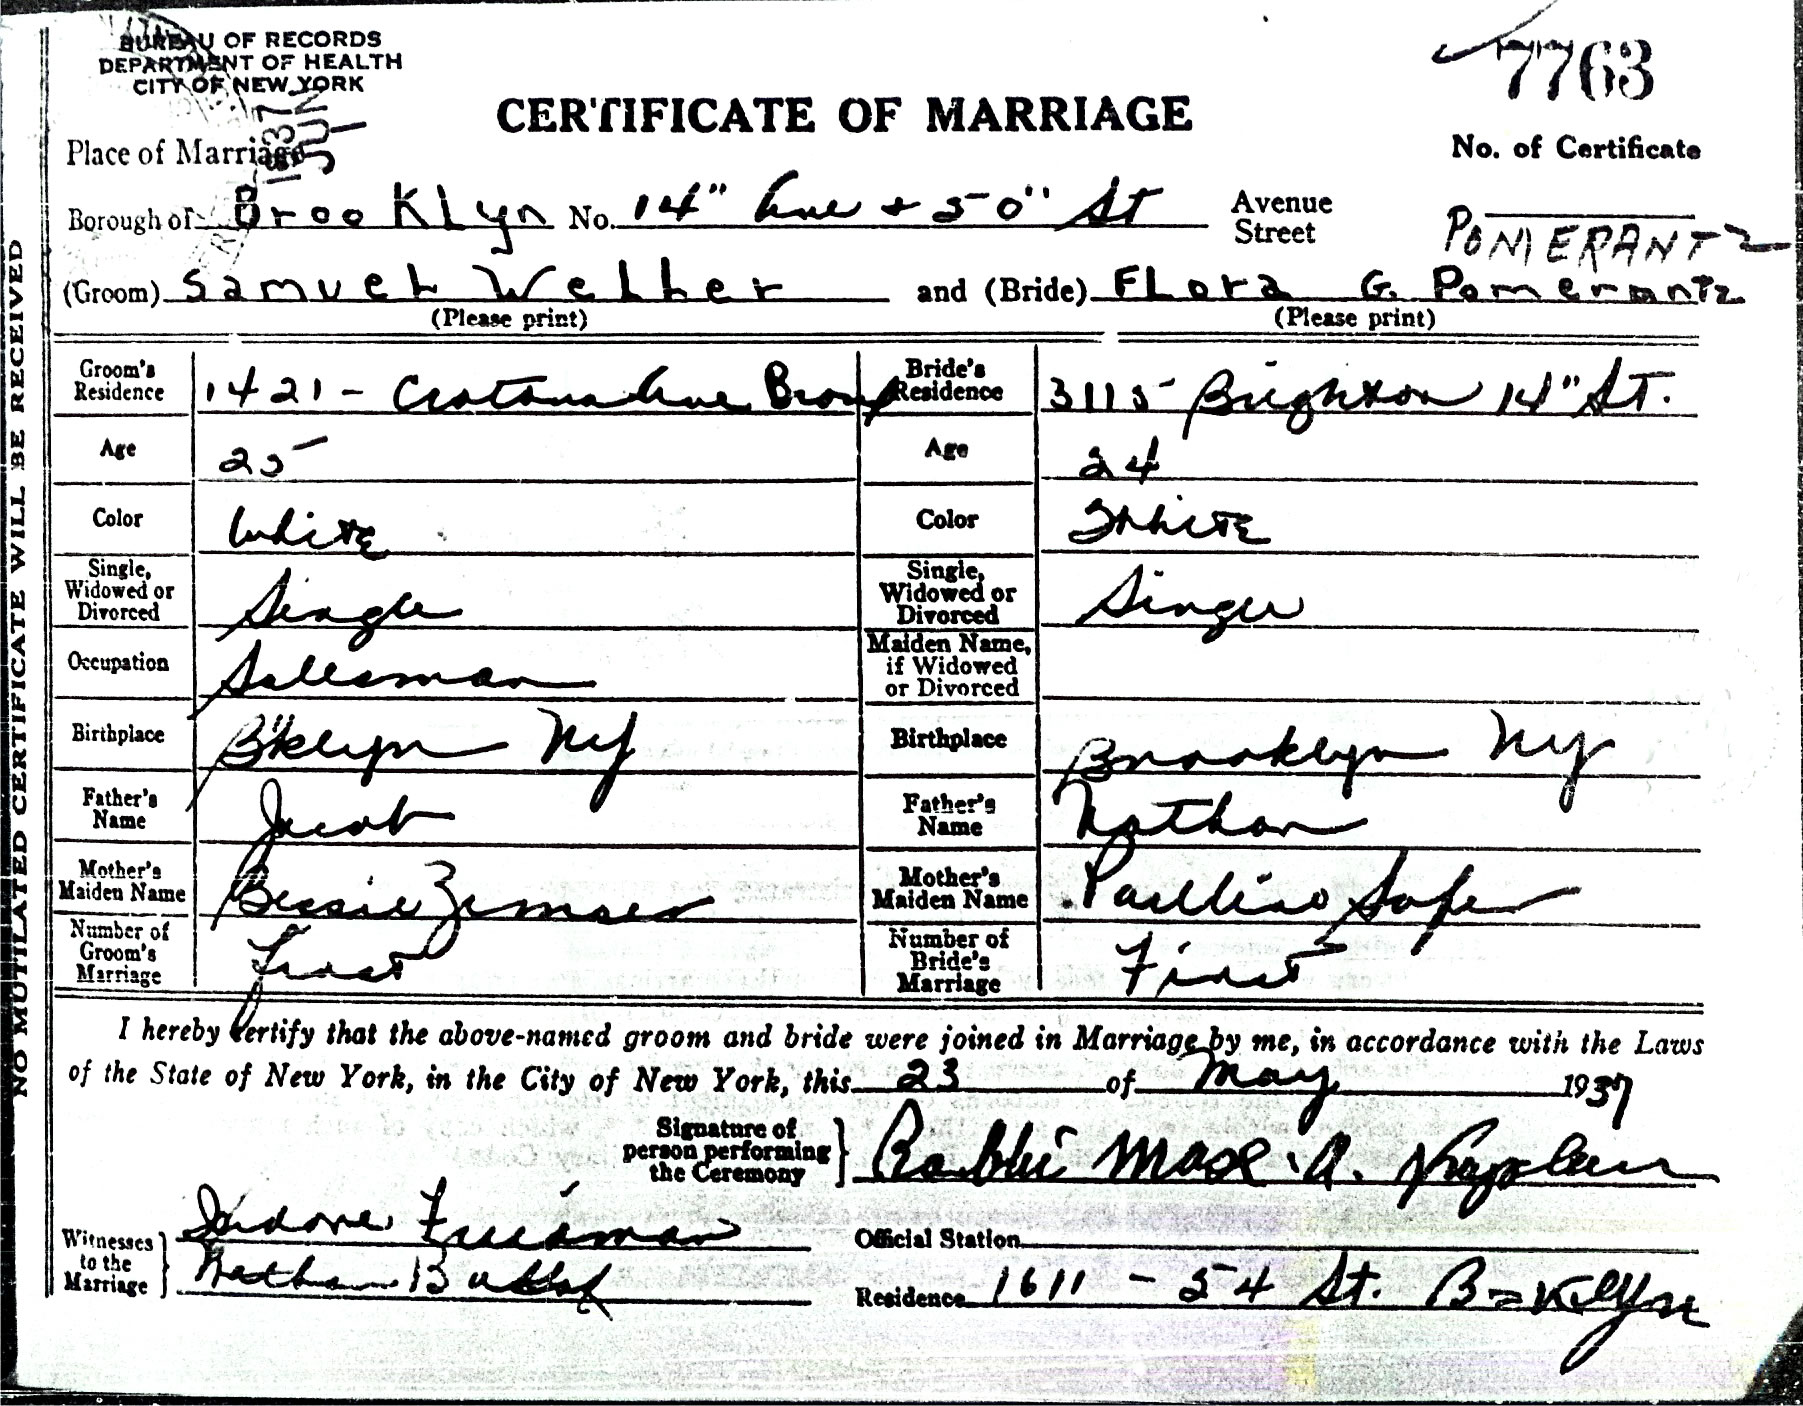 BUREAU OF RECORDS
DEPARTMENT OF HEALTH
CITY OF NEW YORK
1937 JUN 1
7763
CERTIFICATE OF MARRIAGE
No. of Certificate
Place of Marriage
Borough of Brooklyn No. 14" Ave + 50" St Avenue Street
POMERANTZ
(Groom) Samuel Weller and (Bride) Flora G. Pomerantz
(Please print) (Please print)
Groom's Residence 1421 - Crotona Ave Bronx Bride's Residence 3115 Brighton 14" St.
Age 25 Age 24
Color White Color White
Single, Widowed or Divorced Single Single, Widowed or Divorced Single
Occupation Salesman Maiden Name, if Widowed or Divorced
Birthplace B'klyn NY Birthplace Brooklyn NY
Father's Name Jacob Father's Name Nathan
Mother's Maiden Name Bessie Mother's Maiden Name Pauline
Number of Groom's Marriage First Number of Bride's Marriage First
I hereby certify that the above-named groom and bride were joined in Marriage by me, in accordance with the Laws
of the State of New York, in the City of New York, this 23 of May 1937
Signature of person performing the Ceremony Rabbi Max A. Kaplan
Witnesses to the Marriage Isidore Friedman
Nathan
Official Station
Residence 1611 - 54 St. Brooklyn
NO MUTILATED CERTIFICATE WILL BE RECEIVED